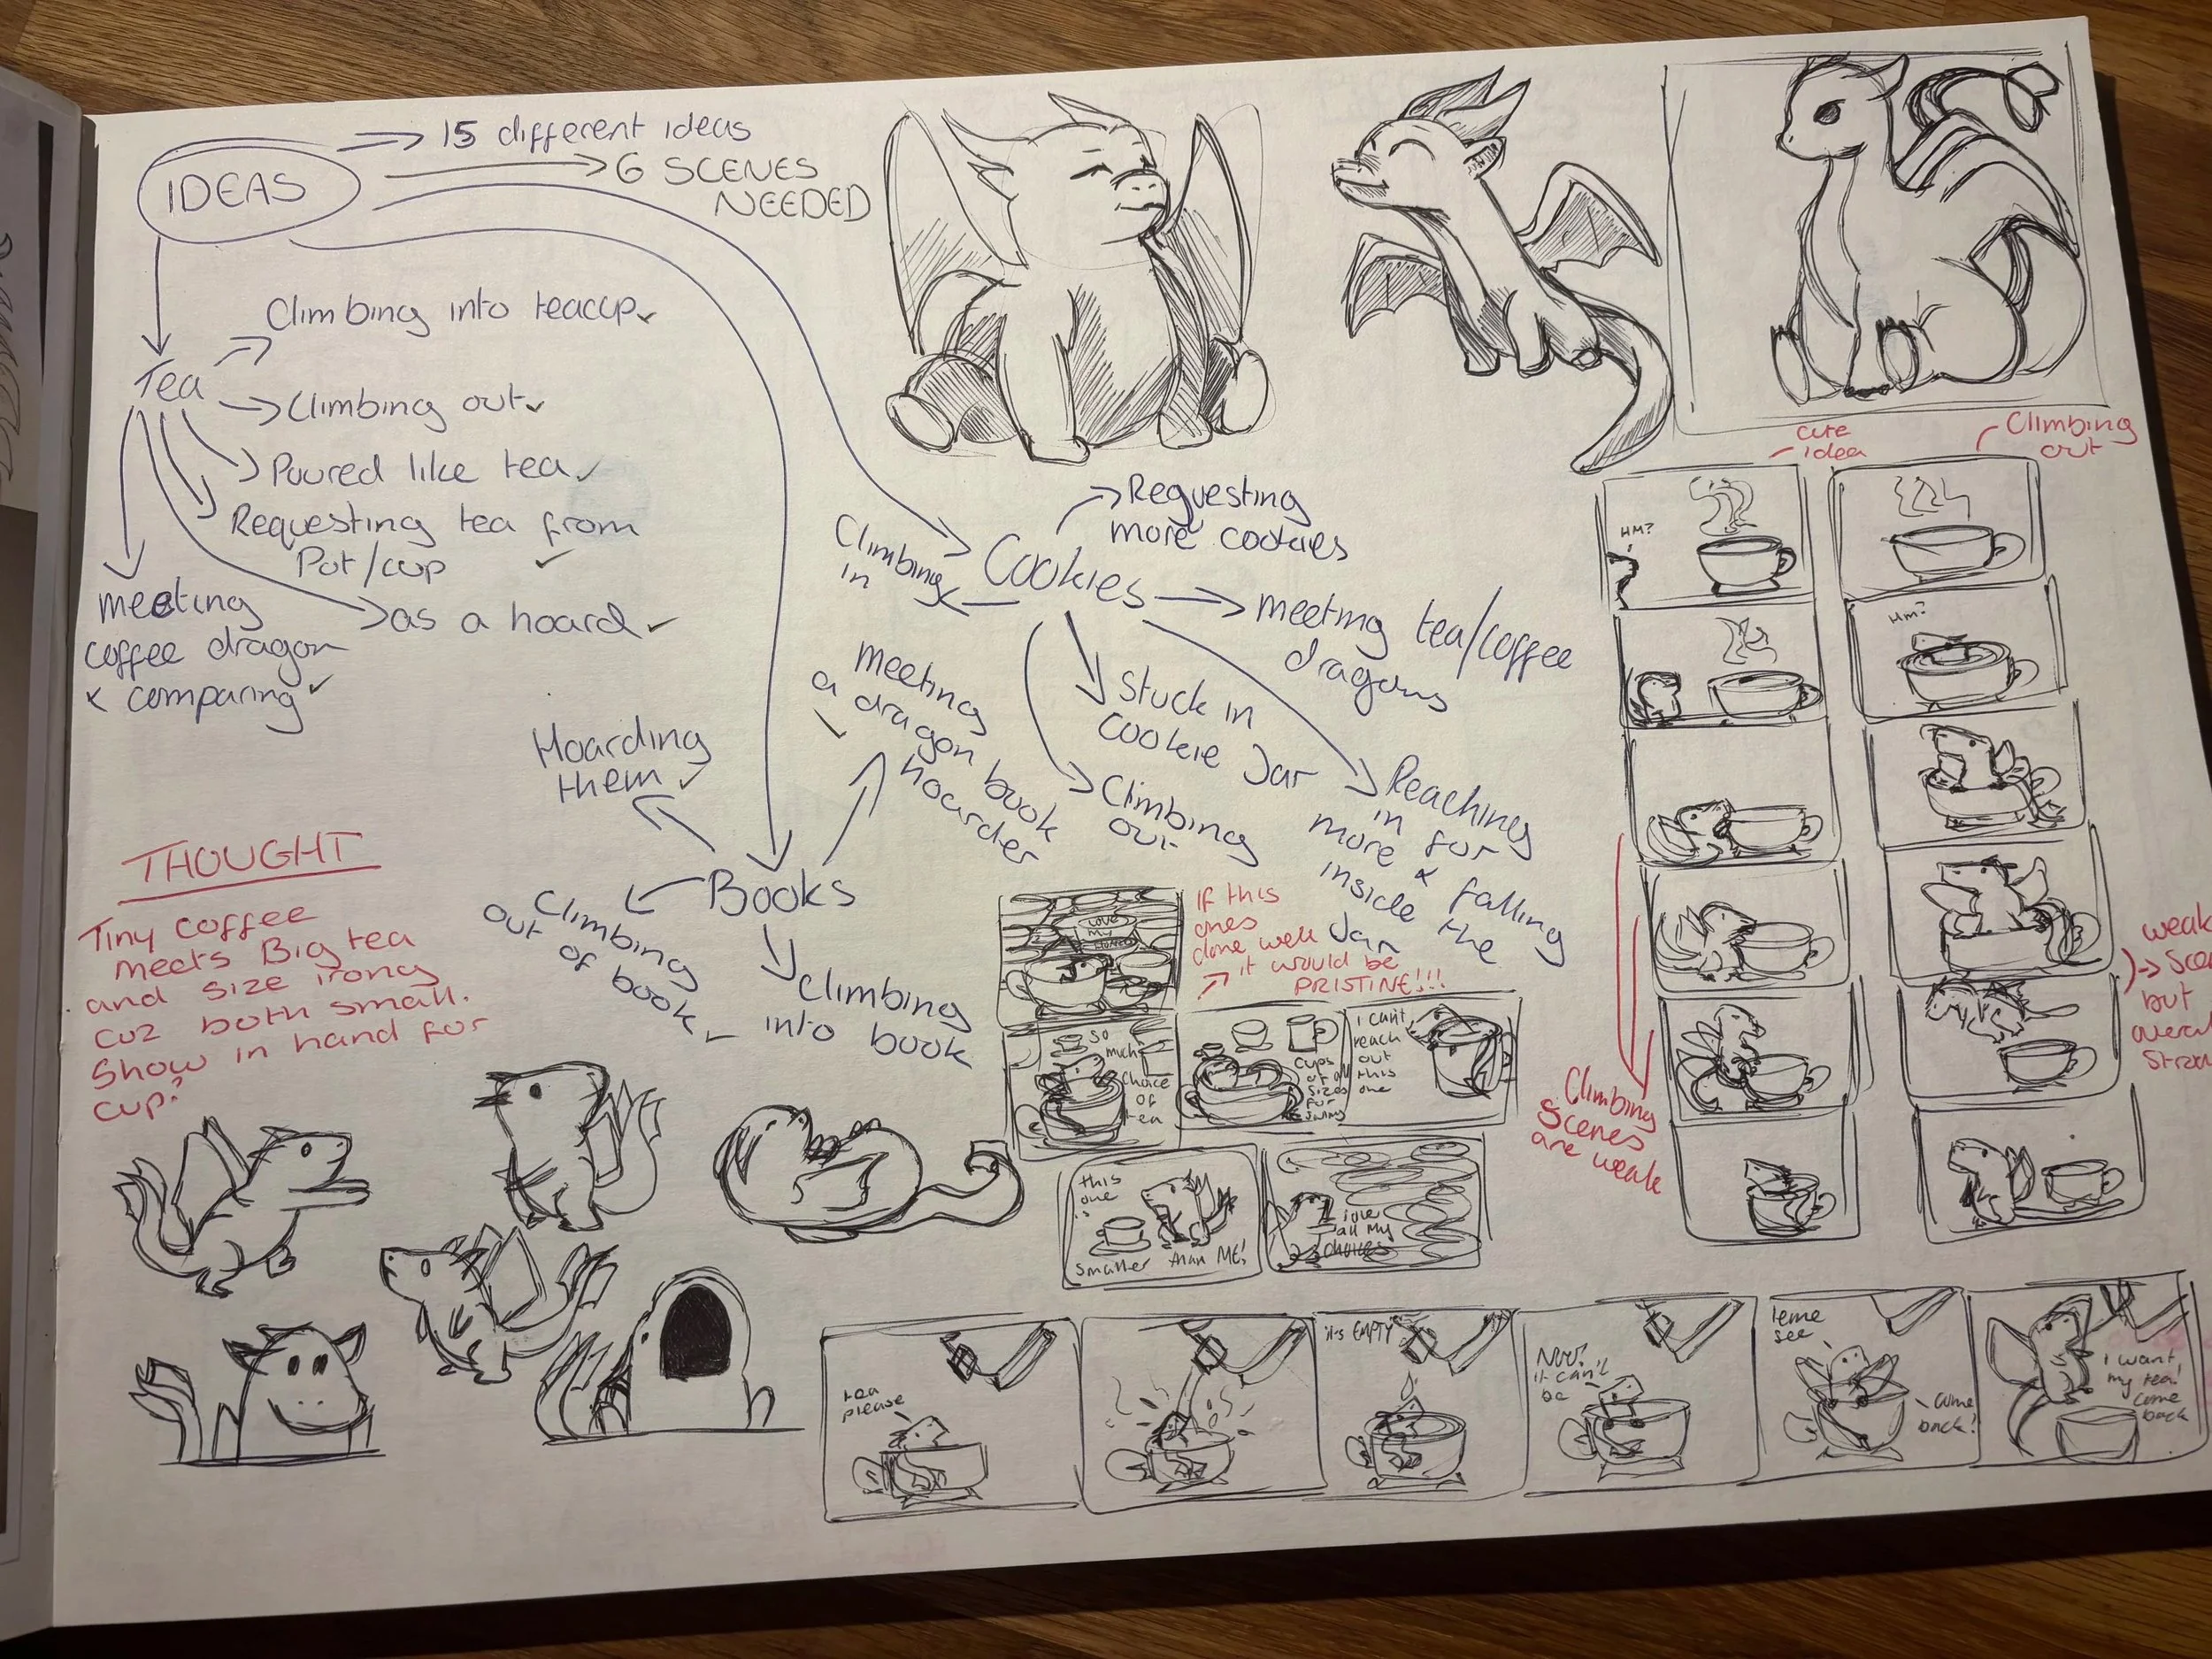 IDEAS
15 different ideas
6 SCENES
NEEDED
Tea
Climbing into teacup ✓
Climbing out ✓
Poured like tea ✓
Requesting tea from
Pot/cup ✓
as a hoard ✓
meeting
coffee dragon
& comparing ✓
Cookies
Requesting
more cookies
Climbing
in
meeting tea/coffee
dragons
Stuck in
cookie Jar
Climbing
out
Reaching
in for
more & falling
inside the
Jar
Books
Hoarding
them ✓
meeting
a dragon book
hoarder
✓
Climbing
out of book ✓
Climbing
into book
THOUGHT
Tiny coffee
meets Big tea
and size irony
cuz both small.
Show in hand for
cup?
If this
ones
done well
it would be
PRISTINE!!!
LOVE
MY
So
much
Choice
of
tea
Cups
of all
sizes
for
I can't
reach
out
this
one
this
one
is
smaller than ME!
I love
all my
choices
cute
idea
HM?
Climbing
out
Hm?
Climbing
Scenes
are weak
weak
but
tea
please
it's EMPTY
Noo?
it can't
be
leme
see
come
back!
I want
my tea!
Come
back